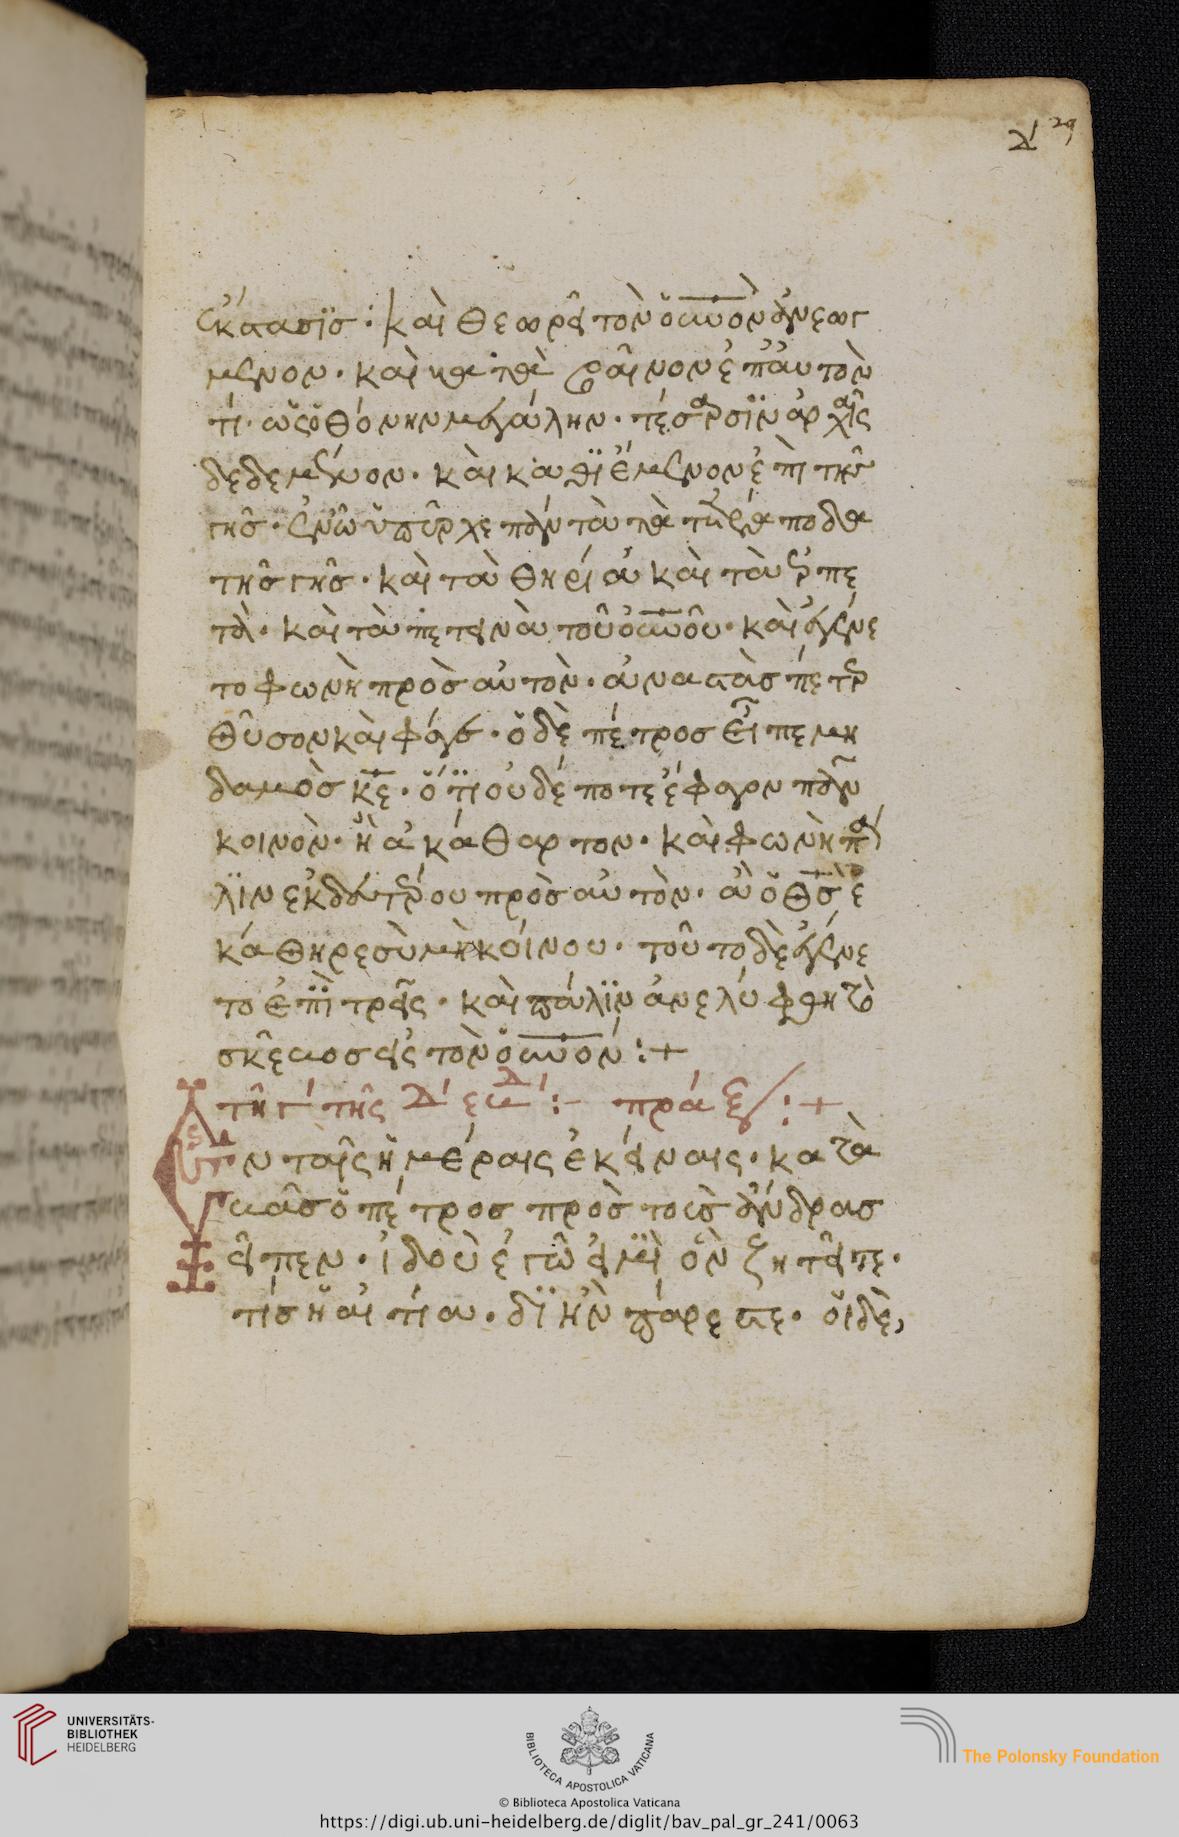 δ 29
ἔκστασϊσ· καὶ θεωρεῖ τὸν οὐνὸν ἀνεωγ
μένον· καὶ καταβαῖνον ἐπ' αὐτὸν
τί· ὡς ὀθόνην μεγάλην· τέσαρσϊν ἀρχαῖς
δεδεμένον· καὶ καθϊέμενον ἐπὶ τῆσ
γῆσ· ἐν ὧ ὑπῆρχε πάντα τὰ τετράποδα
τῆσ γῆσ· καὶ τὰ θηρία καὶ τὰ ἑρπε
τὰ· καὶ τὰ πετεινὰ τοῦ οὐνοῦ· καὶ ἐγένε
το φωνὴ πρὸσ αὐτὸν· ἀναστὰσ πέτρε
θῦσον καὶ φάγε· ὁ δὲ πέτροσ εἶπε μη
δαμὸσ κε· ὅτϊ οὐδέποτε ἔφαγον πᾶν
κοινὸν· ἢ ἀκάθαρτον· καὶ φωνὴ πά
λϊν ἐκ δευτέρου πρὸσ αὐτὸν· ἃ ὁ θσ ἐ
κάθηρε σὺ μὴ κοίνου· τοῦτο δὲ ἐγένε
το ἐπϊ τρεῖς· καὶ πάλϊν ἀνελύφθη τὸ
σκεῦοσ εἰς τὸν οὐνόν :+
τῆ γ´ τῆς δ´ εβδ´ :- πράξ :+
Ἐν ταῖς ἡμέραις ἐκείναις· κατα
στὰσ ὁ πέτροσ πρὸσ τοὺσ ἄνδρασ
εἶπεν· ἰδοὺ ἐγῶ εἰμϊ ὃν ζητεῖτε·
τίσ ἡ αἰτία· δϊ ἣν πάρεστε· οἱ δὲ,
UNIVERSITÄTS-
BIBLIOTHEK
HEIDELBERG
BIBLIOTECA APOSTOLICA VATICANA
The Polonsky Foundation
© Biblioteca Apostolica Vaticana
https://digi.ub.uni-heidelberg.de/diglit/bav_pal_gr_241/0063